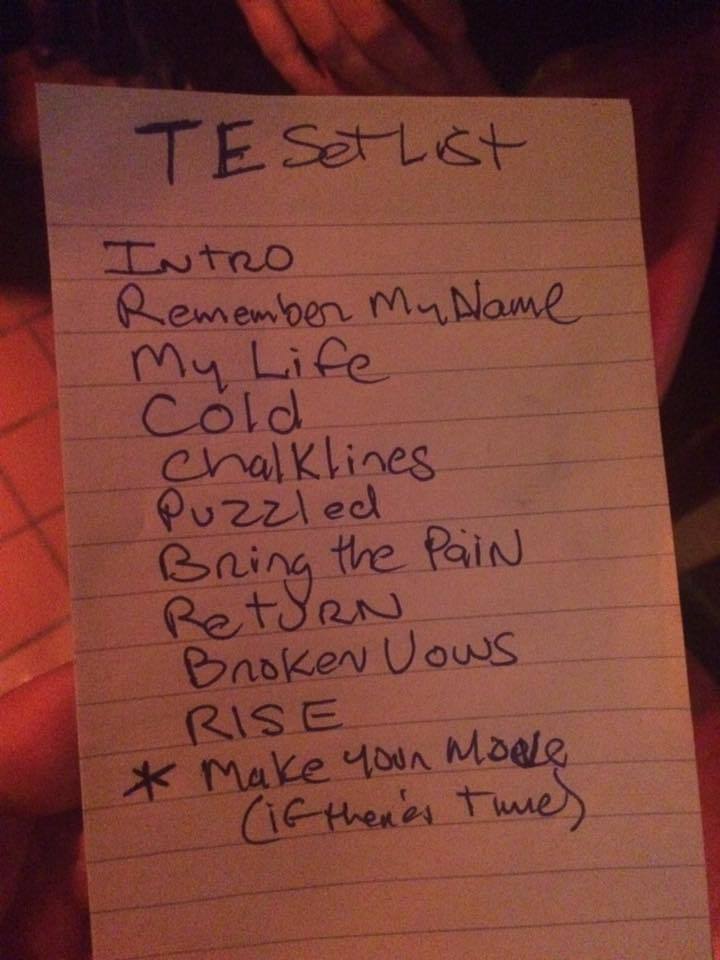 TE Set List
Intro
Remember My Name
My Life
Cold
Chalklines
Puzzled
Bring the Pain
Return
Broken Vows
RISE
* Make your Move
(if there's time)